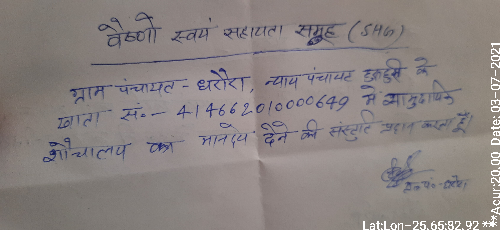 वैष्णो स्वयं सहायता समूह (SHG)
ग्राम पंचायत - धरौरा, न्याय पंचायत के
खाता सं०- 414662010000649 में सामुदायिक
शौचालय का मानदेय देने की संस्तुति प्रदान करता हूँ।
LatLon-25.65:82.92***Acur:20.00 Date:03-07-2021